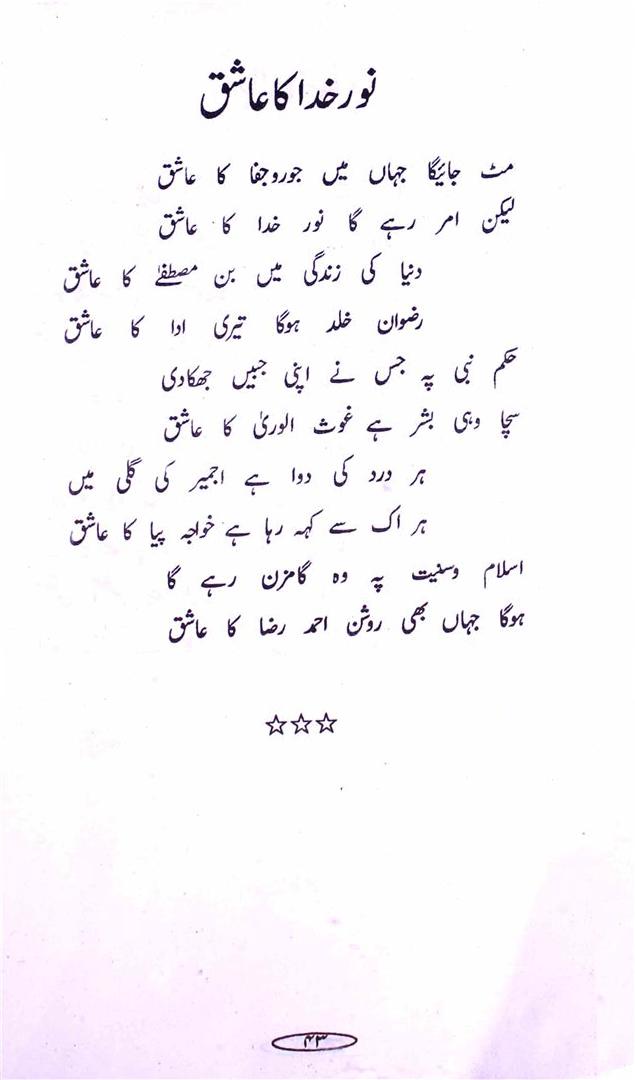 نور خدا کا عاشق
مٹ جائیگا جہاں میں جورو جفا کا عاشق
لیکن امر رہے گا نور خدا کا عاشق
دنیا کی زندگی میں بن مصطفےٰ کا عاشق
رضوان خلد ہوگا تیری ادا کا عاشق
حکم نبی پہ جس نے اپنی جبیں جھکادی
سچا وہی بشر ہے غوث الوریٰ کا عاشق
ہر درد کی دوا ہے اجمیر کی گلی میں
ہر اک سے کہہ رہا ہے خواجہ پیا کا عاشق
اسلام وسنیت پہ وہ گامزن رہے گا
ہوگا جہاں بھی روشن احمد رضا کا عاشق
☆☆☆
۴۳